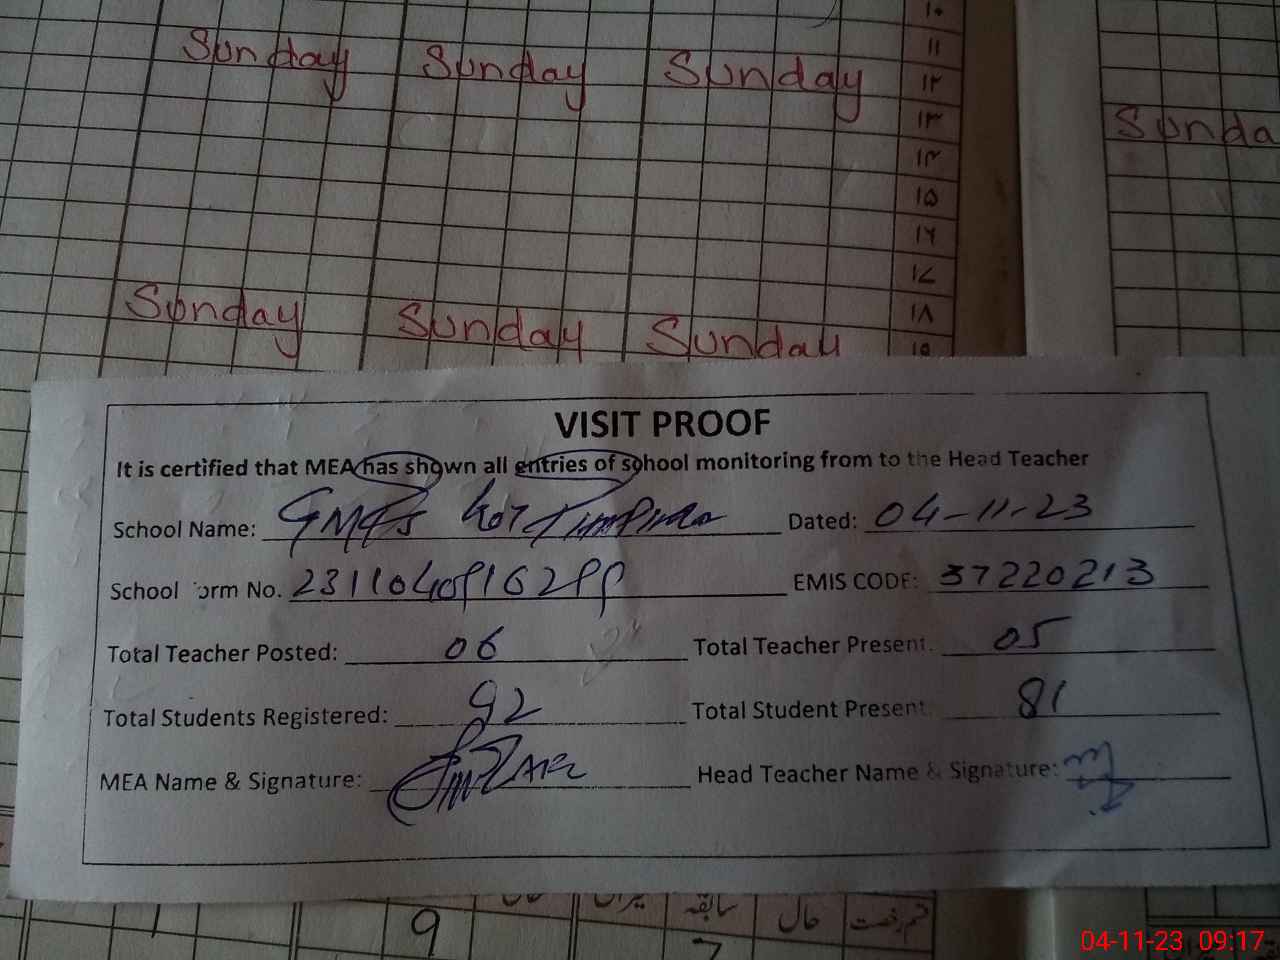 Sunday Sunday Sunday
Sunda
Sunday Sunday Sunday
۱۰
۱۱
۱۲
۱۳
۱۴
۱۵
۱۶
۱۷
۱۸
۱۹
VISIT PROOF
It is certified that MEA has shown all entries of school monitoring from to the Head Teacher
School Name: GMPS Kot Dated: 04-11-23
School orm No. EMIS CODE: 37220213
Total Teacher Posted: 06 Total Teacher Present: 05
Total Students Registered: 92 Total Student Present: 81
MEA Name & Signature: Head Teacher Name & Signature:
سابقہ حال
9
7
04-11-23 09:17